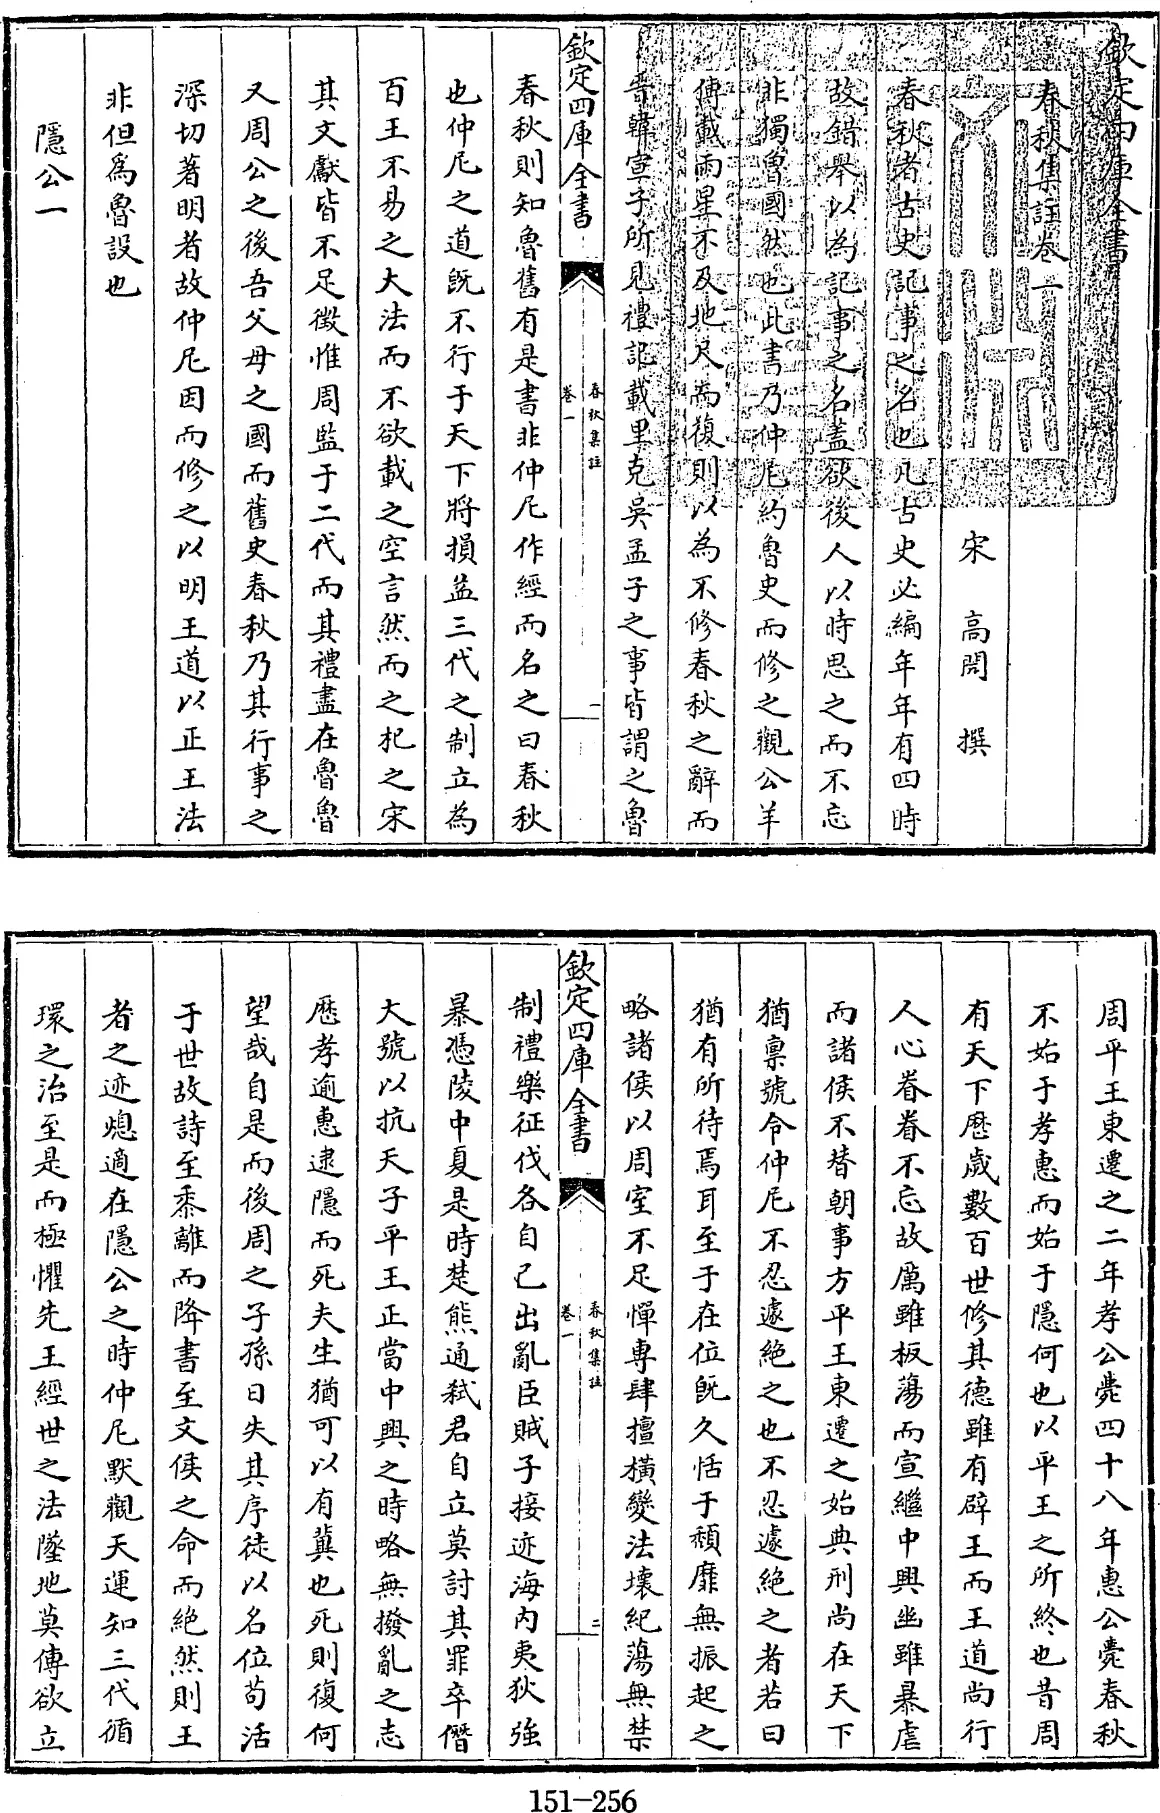 欽定四庫全書
春秋集註卷一
宋　高閌　撰
春秋者古史記事之名也凡古史必編年年有四時
故錯舉以為記事之名蓋欲後人以時思之而不忘
非獨魯國然也此書乃仲尼約魯史而修之觀公羊
傳載雨星不及地尺而復則以為不修春秋之辭而
晉韓宣子所見禮記載里克吳孟子之事皆謂之魯
欽定四庫全書
春秋集註
卷一
一
春秋則知魯舊有是書非仲尼作經而名之曰春秋
也仲尼之道既不行于天下將損益三代之制立為
百王不易之大法而不欲載之空言然而之杞之宋
其文獻皆不足徵惟周監于二代而其禮盡在魯魯
又周公之後吾父母之國而舊史春秋乃其行事之
深切著明者故仲尼因而修之以明王道以正王法
非但為魯設也
隱公一
周平王東遷之二年孝公薨四十八年惠公薨春秋
不始于孝惠而始于隱何也以平王之所終也昔周
有天下歷歲數百世修其德雖有辟王而王道尚行
人心眷眷不忘故厲雖板蕩而宣繼中興幽雖暴虐
而諸侯不替朝事方平王東遷之始典刑尚在天下
猶稟號令仲尼不忍遽絶之也不忍遽絶之者若曰
猶有所待焉耳至于在位既久恬于頹靡無振起之
略諸侯以周室不足憚専肆擅橫變法壞紀蕩無禁
欽定四庫全書
春秋集註
卷一
二
制禮樂征伐各自己出亂臣賊子接迹海内夷狄強
暴憑陵中夏是時楚熊通弒君自立莫討其罪卒僭
大號以抗天子平王正當中興之時略無撥亂之志
歷孝逾惠逮隱而死夫生猶可以有冀也死則復何
望哉自是而後周之子孫日失其序徒以名位苟活
于世故詩至黍離而降書至文侯之命而絶然則王
者之迹熄適在隱公之時仲尼默觀天運知三代循
環之治至是而極懼先王經世之法墜地莫傳欲立
151-256